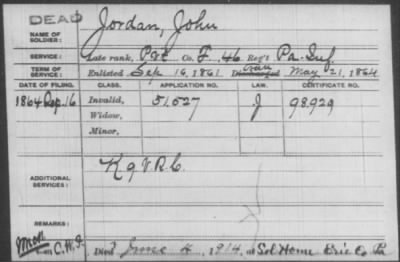 DEAD
Jordan, John
NAME OF SOLDIER:
SERVICE: Late rank, Pvt Co. F, 46 Reg't Pa. Inf.
TERM OF SERVICE: Enlisted Sep 16, 1861 Discharged May 21, 1864
DATE OF FILING. CLASS. APPLICATION NO. LAW. CERTIFICATE NO.
1864 Sep. 16 Invalid, 51,527 J 98,929
Widow,
Minor,
ADDITIONAL SERVICES: K 9 V.R.C.
REMARKS:
C.W.F. Died June 4, 1914, at Sol Home Erie Co Pa